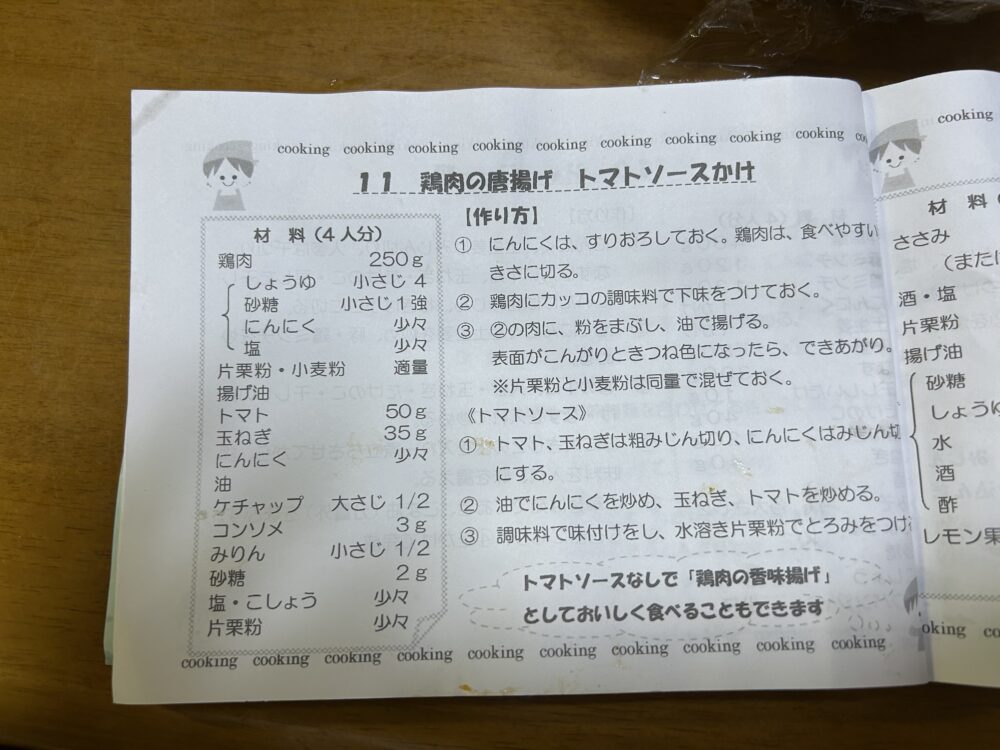 cooking cooking cooking cooking cooking cooking cooking cooking cooking
11 鶏肉の唐揚げ トマトソースかけ
材 料（4人分）
鶏肉 250g
しょうゆ 小さじ 4
砂糖 小さじ1強
にんにく 少々
塩 少々
片栗粉・小麦粉 適量
揚げ油
トマト 50g
玉ねぎ 35g
にんにく 少々
油
ケチャップ 大さじ 1/2
コンソメ 3g
みりん 小さじ 1/2
砂糖 2g
塩・こしょう 少々
片栗粉 少々
【作り方】
① にんにくは、すりおろしておく。鶏肉は、食べやすい
きさに切る。
② 鶏肉にカッコの調味料で下味をつけておく。
③ ②の肉に、粉をまぶし、油で揚げる。
表面がこんがりときつね色になったら、できあがり。
※片栗粉と小麦粉は同量で混ぜておく。
《トマトソース》
① トマト、玉ねぎは粗みじん切り、にんにくはみじん切
にする。
② 油でにんにくを炒め、玉ねぎ、トマトを炒める。
③ 調味料で味付けをし、水溶き片栗粉でとろみをつけ
トマトソースなしで「鶏肉の香味揚げ」
としておいしく食べることもできます
cooking cooking cooking cooking cooking cooking cooking cooking cooking cooking
cooking
材 料
ささみ
（または
酒・塩
片栗粉
揚げ油
砂糖
しょうゆ
水
酒
酢
レモン果
ooking